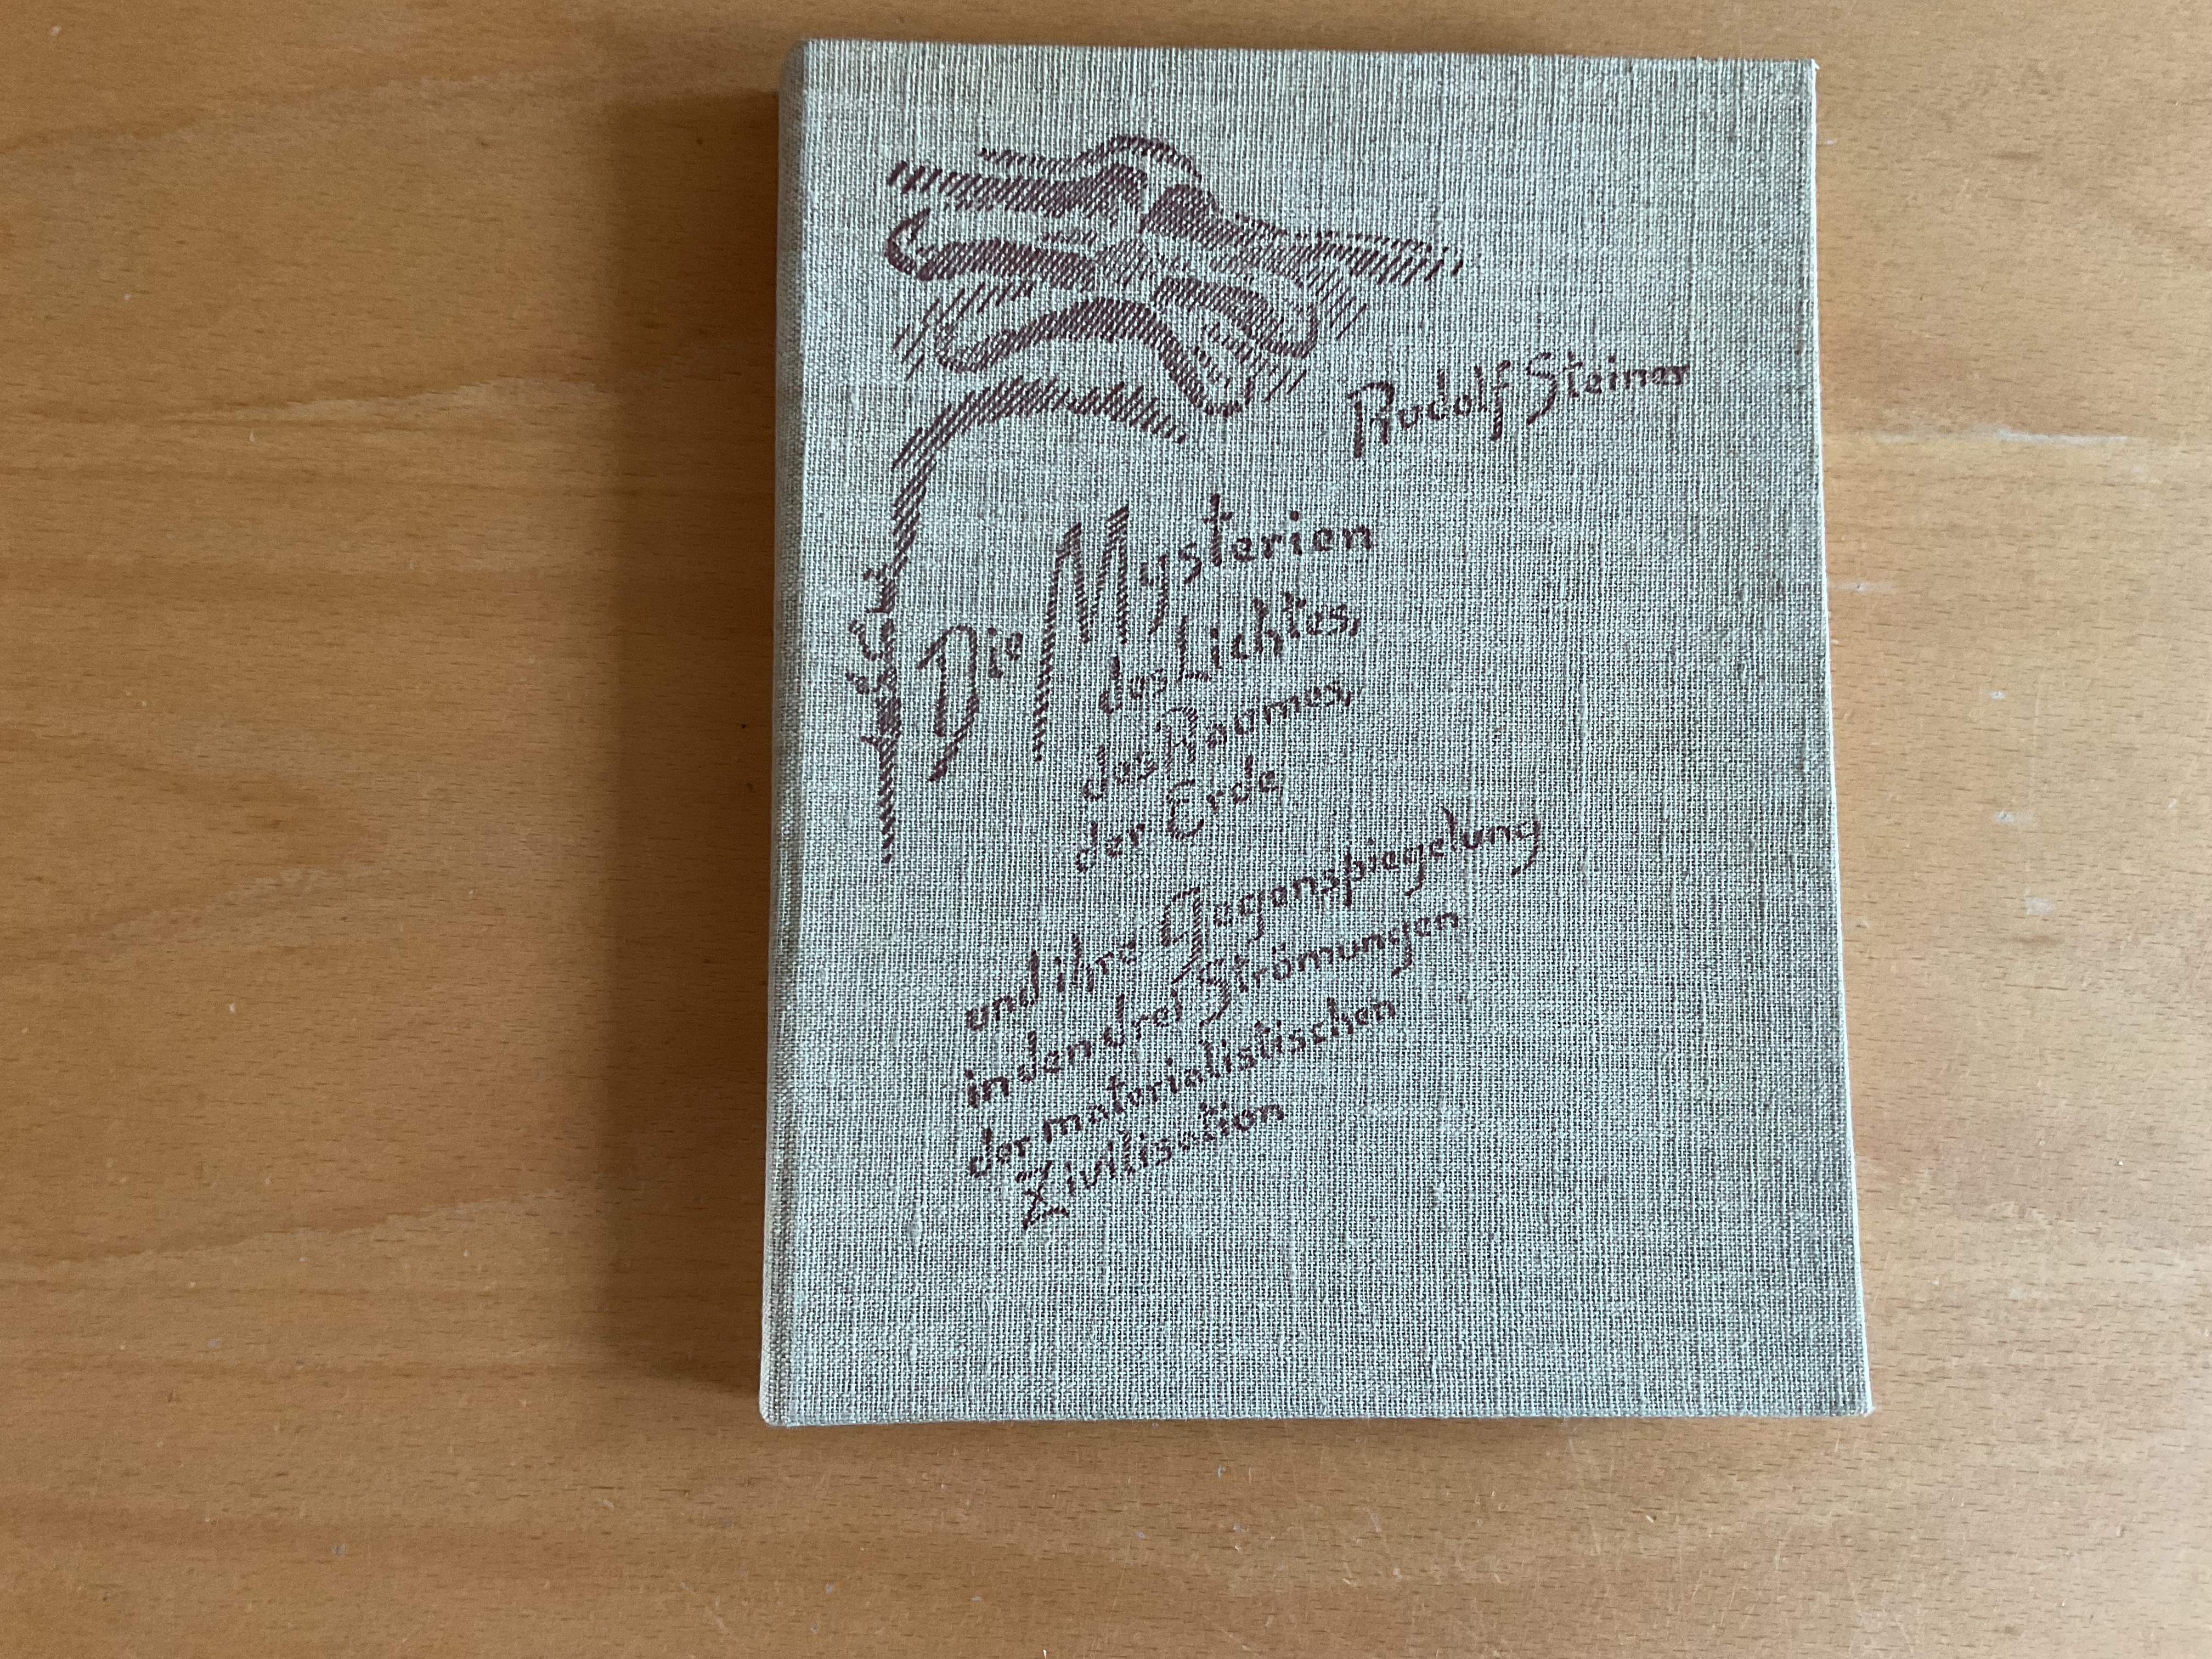 Rudolf Steiner
Die Mysterien
des Lichtes,
des Raumes,
der Erde
und ihre Gegenspiegelung
in den drei Strömungen
der materialistischen
Zivilisation